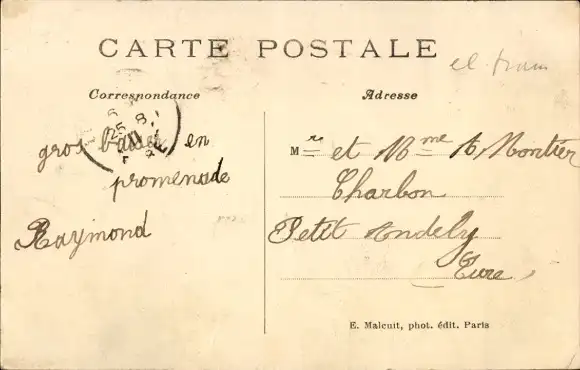 CARTE POSTALE
el tram
Correspondance
Adresse
25 8
gros baiser en
promenade
Raymond
Mr et Mme A. Montier
Charbon
Petit Andely
Eure
E. Malcuit, phot. édit. Paris